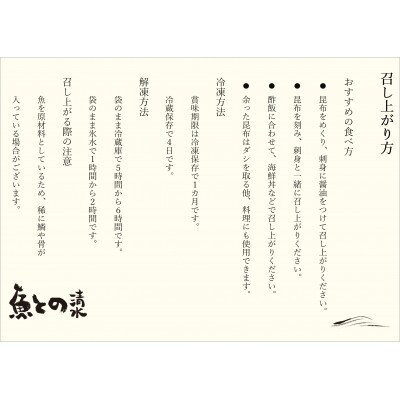 召し上がり方
おすすめの食べ方
● 昆布をめくり、刺身に醤油をつけて召し上がりください。
● 昆布を刻み、刺身と一緒に召し上がりください。
● 酢飯に合わせて、海鮮丼などで召し上がりください。
● 余った昆布はダシを取る他、料理にも使用できます。
冷凍方法
賞味期限は冷凍保存で1カ月です。
冷蔵保存で4日です。
解凍方法
袋のまま冷蔵庫で5時間から6時間です。
袋のまま氷水で1時間から2時間です。
召し上がる際の注意
魚を原材料としているため、稀に鱗や骨が
入っている場合がございます。
魚との清水